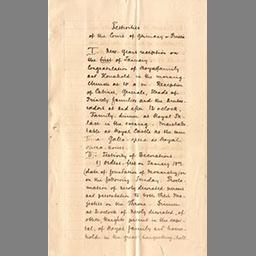 Festivities
of the Court of Germany & Prussia
I. New Years reception on
the first of January.
Congratulation of Royal family
and Household in the morning
Church at 10 a m Reception
of Cabinet, Generals, Heads of
Princely families and the Ambas-
sadors at and after 12 o'clock.
Family-dinner at Royal Pa-
lace in the evening. Marshals
table at Royal Castle at the same
a Gala-opera at Royal
opera-house
II. Festivity of Decorations
1) Orders-fest on January 18th
(date of foundation of Monarchy) or
on the following Sunday. Procla-
mation of newly decorated persons
and presentation to both Their Ma-
jesties on the Throne. Dinner
at 2 o'clock of newly decorated, of
other Knights present in the capi-
tal, of Royal family and house-
hold in the great banqueting-hall